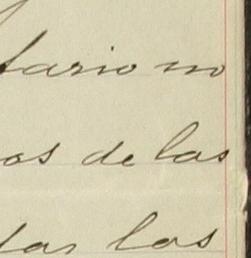 tario no
os de las
das los